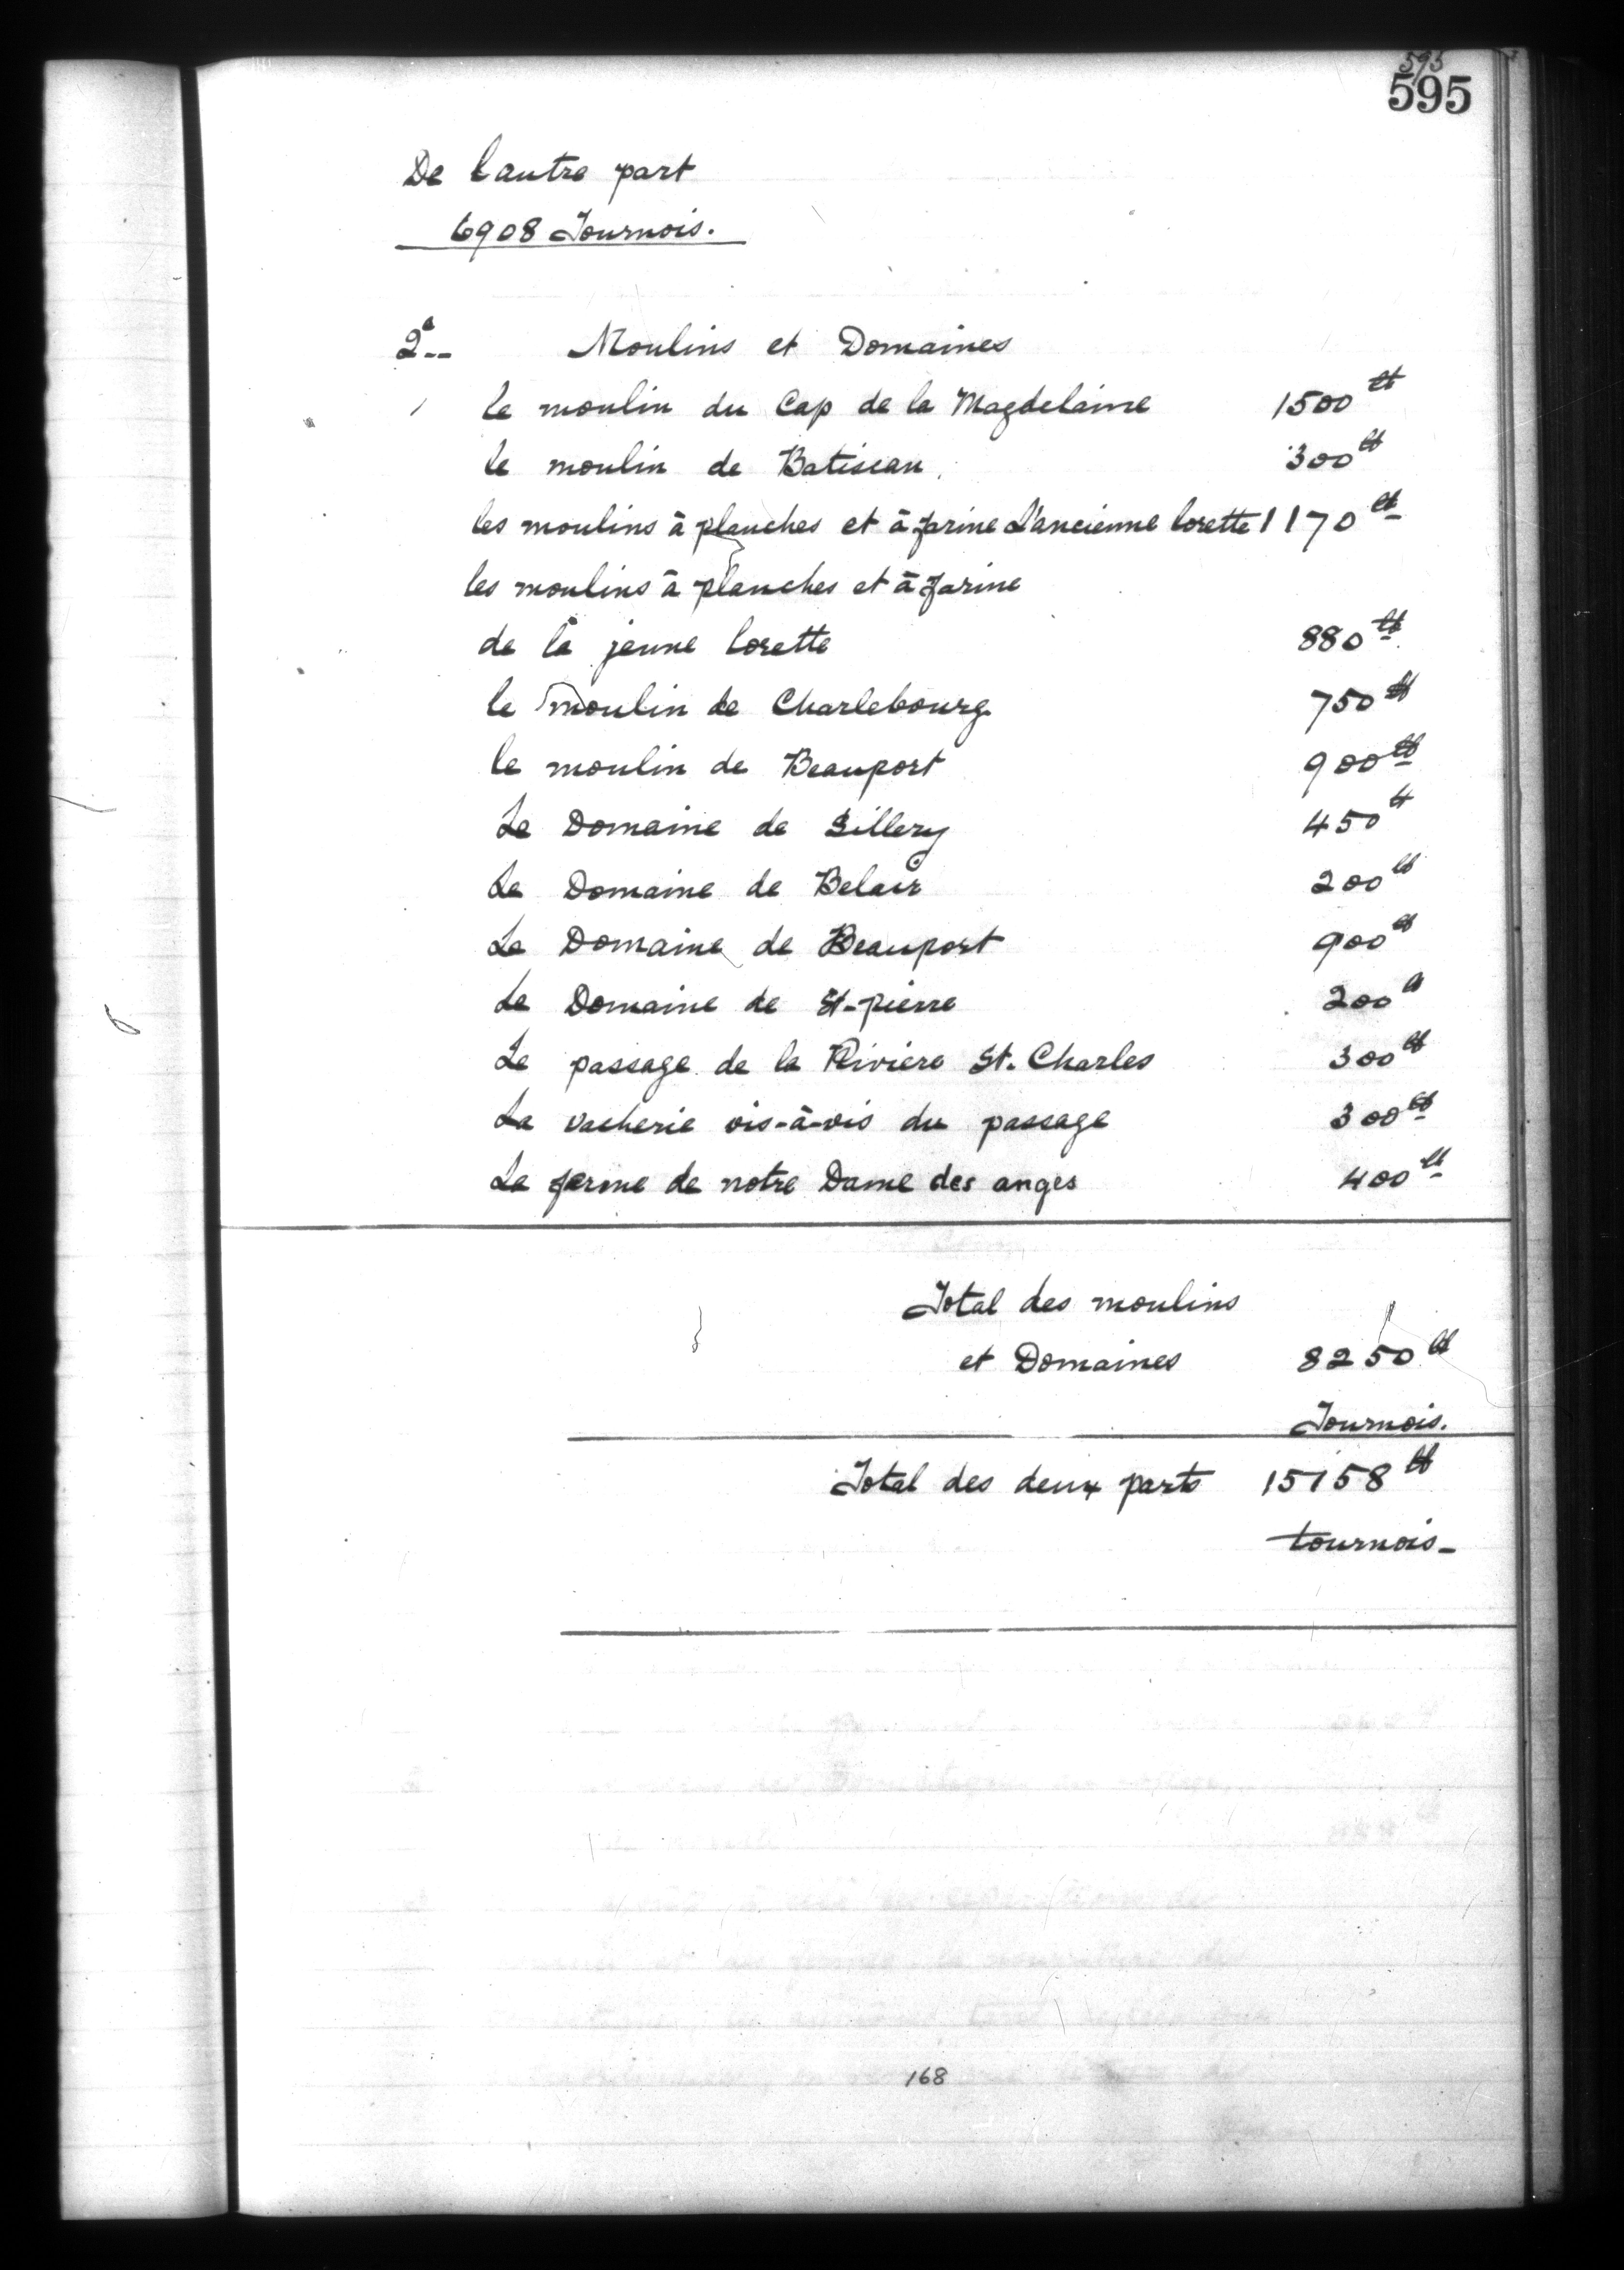 595
595
De lautre part
6908 Tournois.
2° -- Moulins et Domaines
le moulin du Cap de la Magdelaine 1500 ₶
le moulin de Batiscan 300 ₶
les moulins à planches et à farine L'ancienne lorette 1170 ₶
les moulins à planches et à farine
de la jeune lorette 880 ₶
le moulin de Charlebourg 750 ₶
le moulin de Beauport 900 ₶
Le Domaine de Sillery 450 ₶
Le Domaine de Belair 200 ₶
Le Domaine de Beauport 900 ₶
Le Domaine de St-pierre 200 ₶
Le passage de la Riviere St. Charles 300 ₶
La vacherie vis-à-vis du passage 300 ₶
La ferme de notre Dame des anges 400 ₶
Total des moulins
et Domaines 8250 ₶
Tournois.
Total des deux parts 15158 ₶
tournois -
168